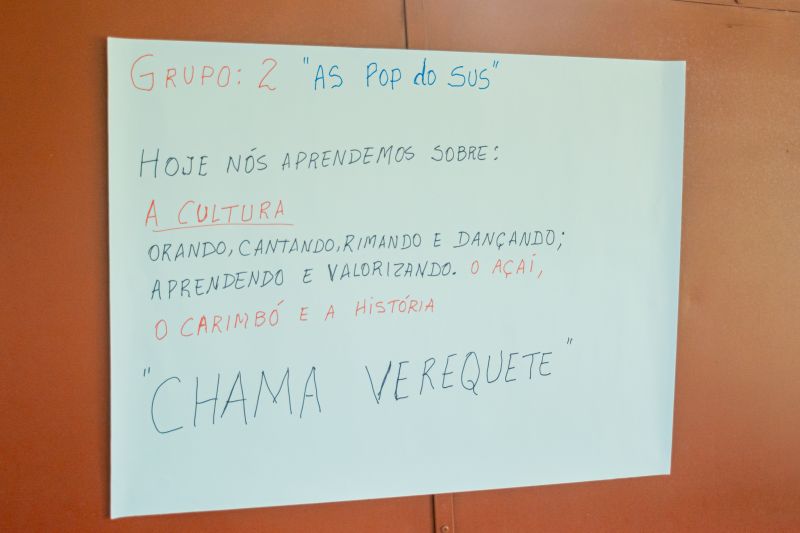 GRUPO: 2 "AS POP do SUS"
HOJE NÓS APRENDEMOS SOBRE:
A CULTURA
ORANDO, CANTANDO, RIMANDO E DANÇANDO;
APRENDENDO E VALORIZANDO. O AÇAÍ,
O CARIMBÓ E A HISTÓRIA
"CHAMA VEREQUETE"